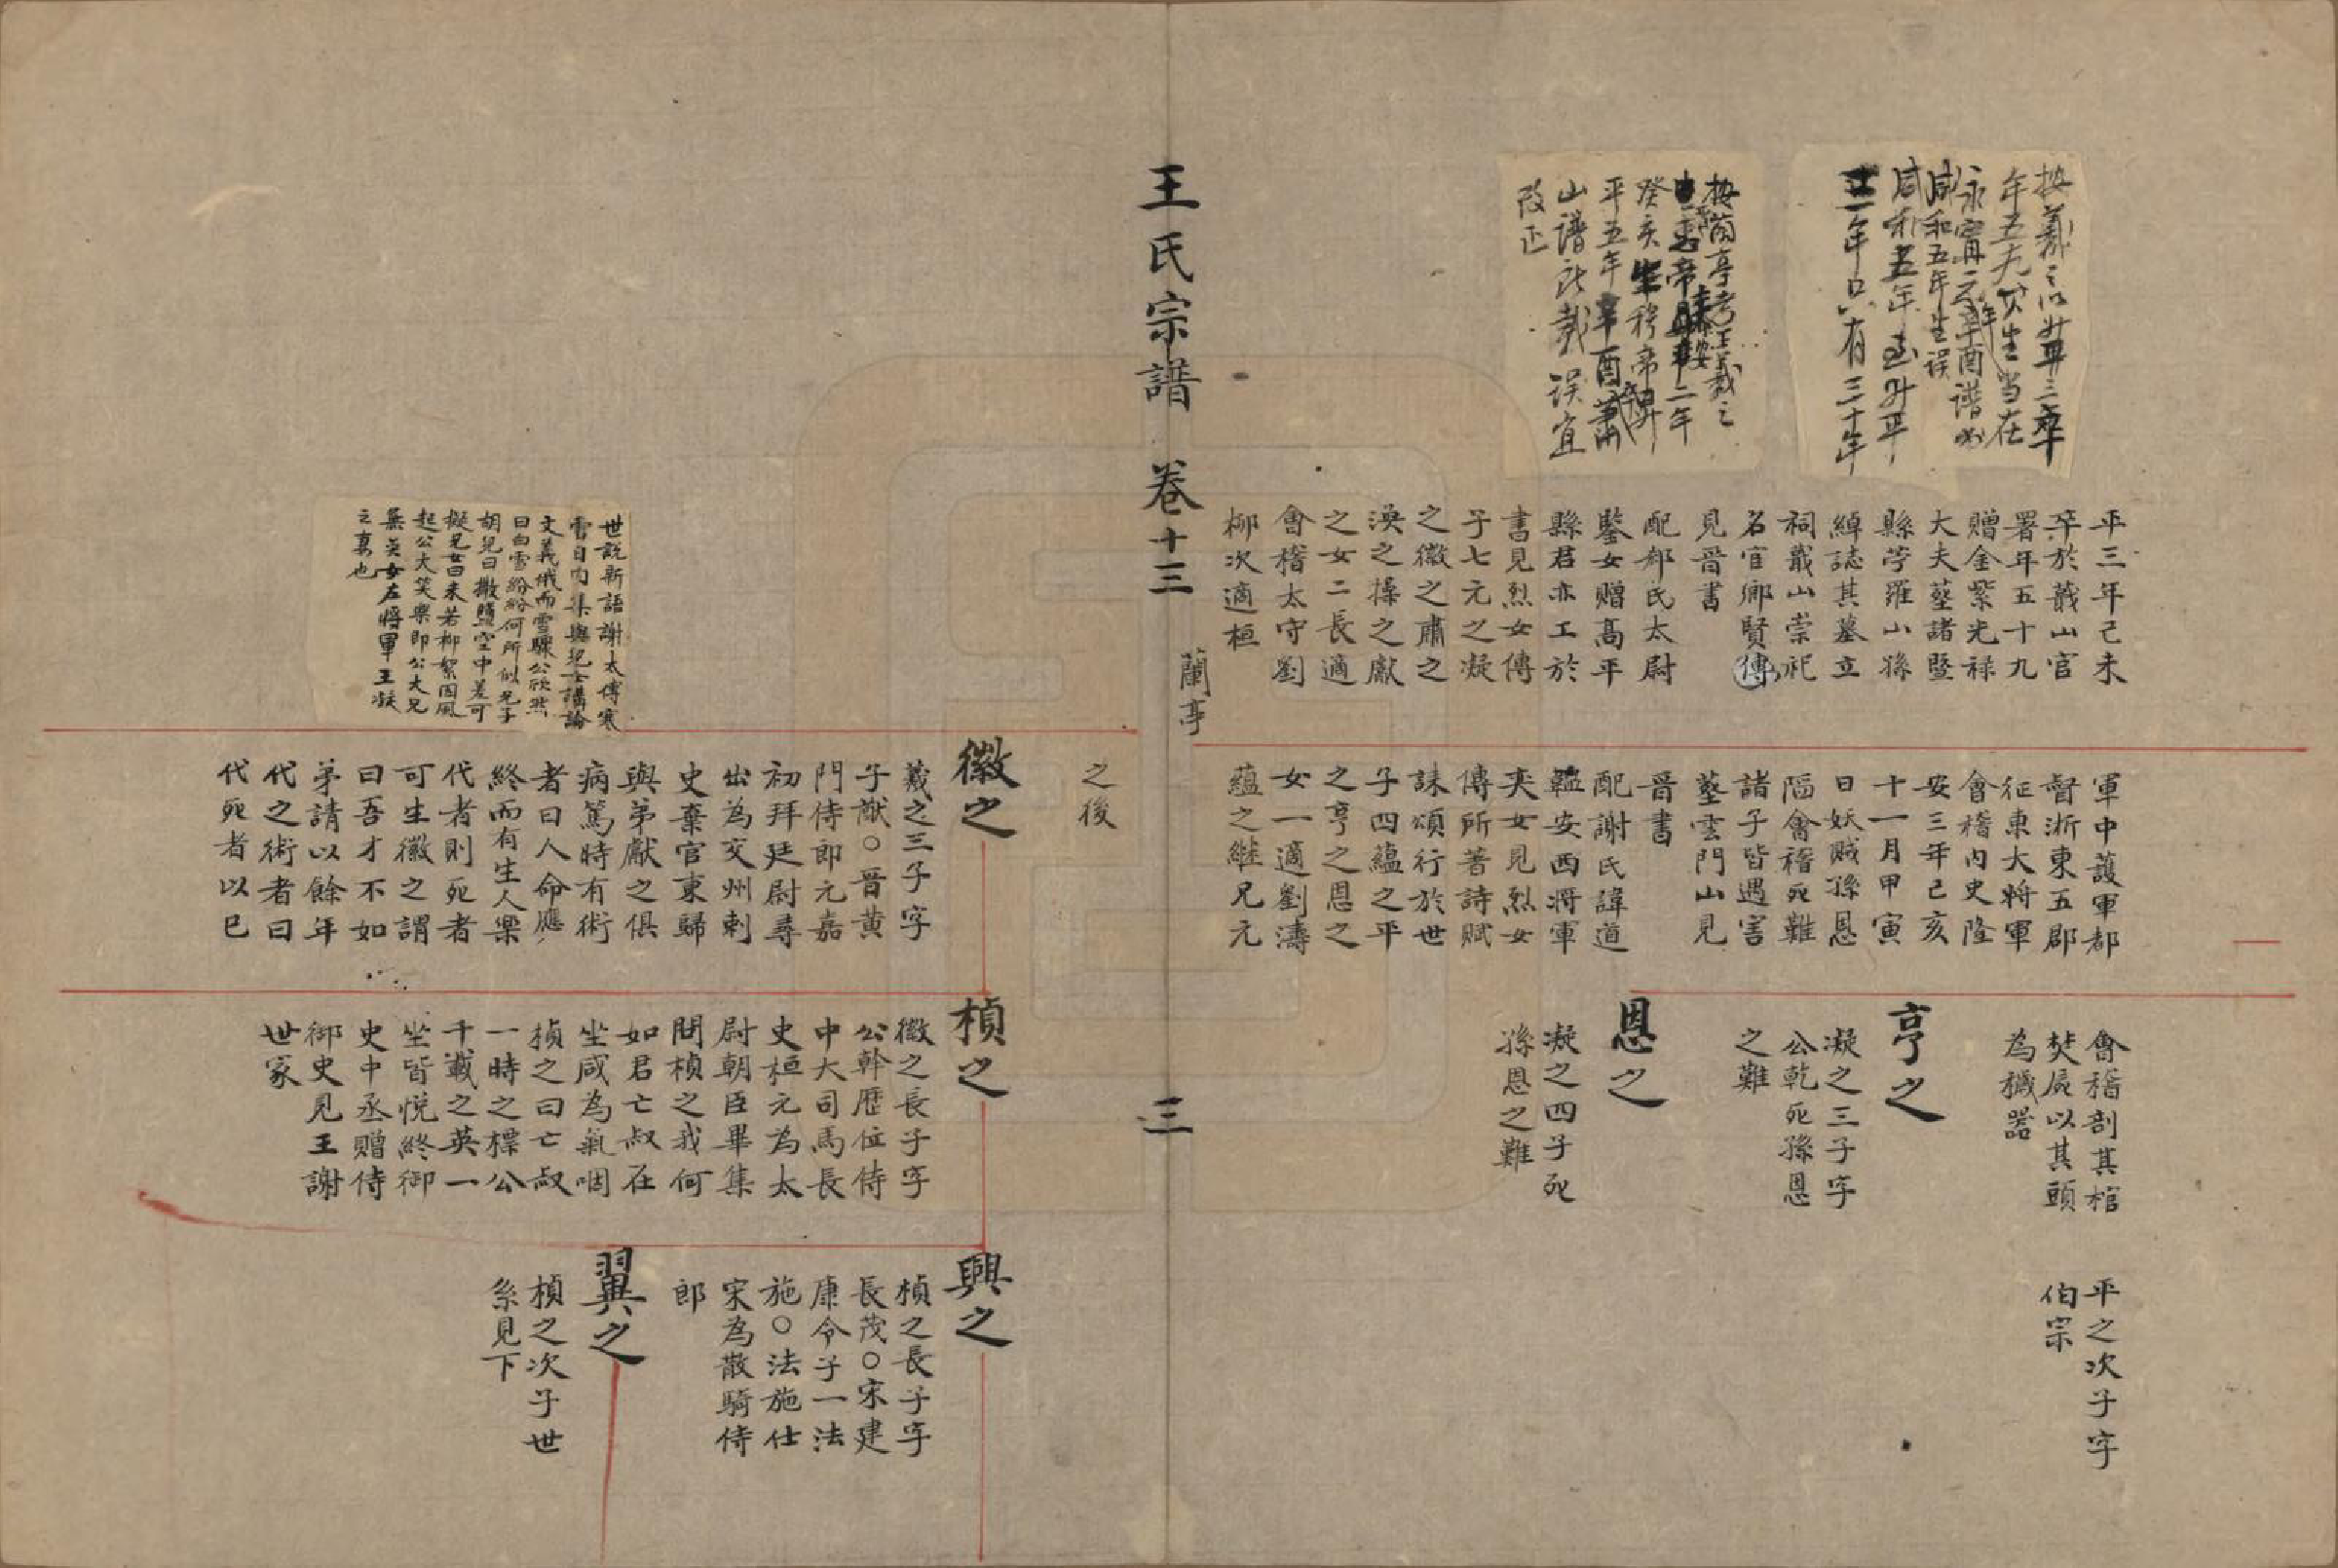 按羲之以升平三年卒
年五九
永寧元年辛酉譜
咸和五年生误
咸和五年至升平
三年只有三十年
按蘭亭考王羲之
癸亥生穆帝昇
平五年辛酉薨
山谱所载误宜
改正
平三年己未
卒於蕺山官
署年五十九
贈金紫光禄
大夫塟諸暨
縣苧羅山孫
綽誌其墓立
祠蕺山崇祀
名宦鄉賢傳
見晋書
配郗氏太尉
鑒女贈高平
縣君亦工於
書見烈女傳
子七元之凝
之徽之肅之
渙之操之獻
之女二長適
會稽太守劉
柳次適桓
軍中護軍都
督浙東五郡
征東大將軍
會稽内史隆
安三年己亥
十一月甲寅
日妖賊孫恩
陷會稽死難
諸子皆遇害
塟雲門山見
晋書
配謝氏諱道
韞安西將軍
奕女見烈女
傳所著詩賦
誄頌行於世
子四蘊之平
之亨之恩之
女一適劉濤
蘊之継兄元
會稽剖其棺
焚屍以其頭
為穢器
亨之
凝之三子字
公乾死孫恩
之難
恩之
凝之四子死
孫恩之難
平之次子字
伯宗
王氏宗譜 卷十三 蘭亭 三
世説新語謝太傅寒
雪日内集與兒女講論
文義俄而雪驟公欣然
曰白雪紛紛何所似兄子
胡兒曰撒鹽空中差可
擬兄女曰未若柳絮因風
起公大笑樂即公大兄
無奕女左將軍王凝
之妻也
之後
徽之
羲之三子字
子猷○晋黄
門侍郎元嘉
初拜廷尉尋
出為交州刺
史棄官東歸
與弟獻之俱
病篤時有術
者曰人命應
終而有生人樂
代者則死者
可生徽之謂
曰吾才不如
弟請以餘年
代之術者曰
代死者以已
楨之
徽之長子字
公幹歷位侍
中大司馬長
史桓元為太
尉朝臣畢集
問楨之我何
如君亡叔在
坐咸為氣咽
楨之曰亡叔
一時之標公
千載之英一
坐皆悦終御
史中丞贈侍
御史見王謝
世家
興之
楨之長子字
長茂○宋建
康令子一法
施○法施仕
宋為散騎侍
郎
翼之
楨之次子世
系見下